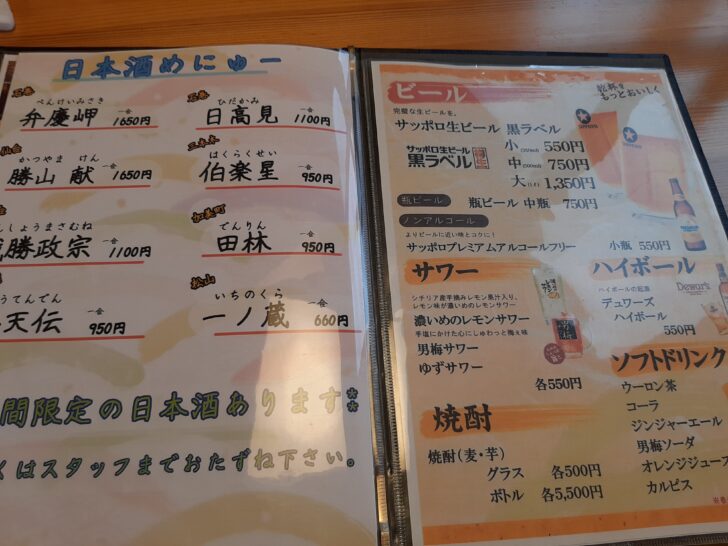 日本酒めにゅー
石巻
べんけいみさき
弁慶岬 一合 1650円
ひだかみ
日高見 一合 1100円
仙台
かつやま けん
勝山 献 一合 1650円
三本木
はくらくせい
伯楽星 一合 950円
しょうまさむね
勝政宗 一合 1100円
加美町
でんりん
田林 一合 950円
うてんでん
天伝 一合 950円
松山
いちのくら
一ノ蔵 一合 660円
間限定の日本酒あります*
くはスタッフまでおたずね下さい。
ビール
乾杯をもっとおいしく
完璧な生ビールを。
サッポロ生ビール 黒ラベル
サッポロ生ビール
黒ラベル
小 550円
中 750円
大 1,350円
瓶ビール
瓶ビール 中瓶 750円
ノンアルコール
よりビールに近い味とコクに!
サッポロプレミアムアルコールフリー 小瓶 550円
サワー
シチリア産手摘みレモン果汁入り、
レモン味が濃いめのレモンサワー
濃いめのレモンサワー
手塩にかけた心にしゅわっと梅ぇ味
男梅サワー
ゆずサワー
各550円
ハイボール
ハイボールの起源
Dewar's
デュワーズ
ハイボール
550円
焼酎
焼酎(麦・芋)
グラス 各500円
ボトル 各5,500円
ソフトドリンク
ウーロン茶
コーラ
ジンジャーエール
男梅ソーダ
オレンジジュース
カルピス